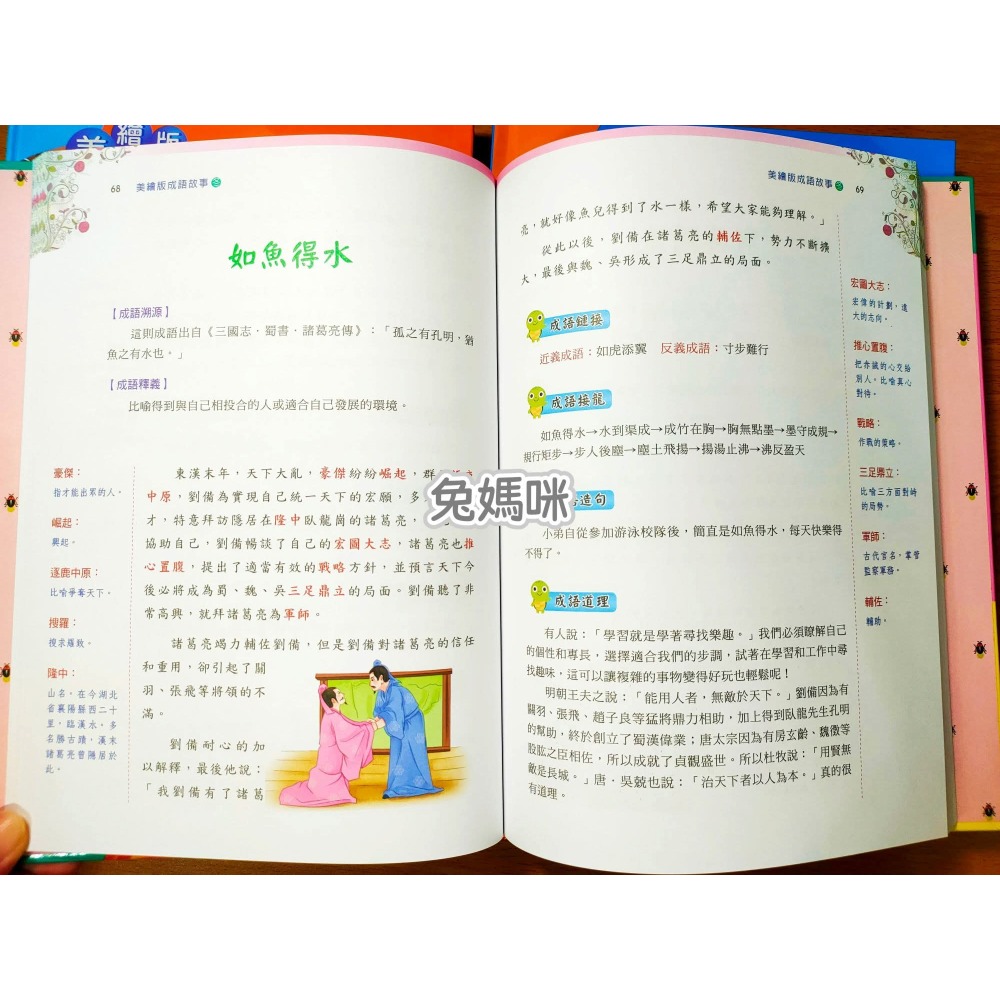 美繪版
68 美繪版成語故事 冬
如魚得水
【成語溯源】
這則成語出自《三國志．蜀書．諸葛亮傳》：「孤之有孔明，猶
魚之有水也。」
【成語釋義】
比喻得到與自己相投合的人或適合自己發展的環境。
豪傑：
指才能出眾的人。
崛起：
興起。
逐鹿中原：
比喻爭奪天下。
搜羅：
搜求羅致。
隆中：
山名。在今湖北
省襄陽縣西二十
里，臨漢水。多
名勝古蹟，漢末
諸葛亮曾隱居於
此。
東漢末年，天下大亂，豪傑紛紛崛起，群
中原，劉備為實現自己統一天下的宏願，多
才，特意拜訪隱居在隆中臥龍崗的諸葛亮，
協助自己，劉備暢談了自己的宏圖大志，諸葛亮也推
心置腹，提出了適當有效的戰略方針，並預言天下今
後必將成為蜀、魏、吳三足鼎立的局面。劉備聽了非
常高興，就拜諸葛亮為軍師。
諸葛亮竭力輔佐劉備，但是劉備對諸葛亮的信任
和重用，卻引起了關
羽、張飛等將領的不
滿。
劉備耐心的加
以解釋，最後他說：
「我劉備有了諸葛
美繪版成語故事 冬 69
亮，就好像魚兒得到了水一樣，希望大家能夠理解。」
從此以後，劉備在諸葛亮的輔佐下，勢力不斷擴
大，最後與魏、吳形成了三足鼎立的局面。
成語鏈接
近義成語：如虎添翼 反義成語：寸步難行
成語接龍
如魚得水→水到渠成→成竹在胸→胸無點墨→墨守成規→
規行矩步→步人後塵→塵土飛揚→揚湯止沸→沸反盈天
造句
小弟自從參加游泳校隊後，簡直是如魚得水，每天快樂得
不得了。
成語道理
有人說：「學習就是學著尋找樂趣。」我們必須瞭解自己
的個性和專長，選擇適合我們的步調，試著在學習和工作中尋
找趣味，這可以讓複雜的事物變得好玩也輕鬆呢！
明朝王夫之說：「能用人者，無敵於天下。」劉備因為有
關羽、張飛、趙子良等猛將鼎力相助，加上得到臥龍先生孔明
的幫助，終於創立了蜀漢偉業；唐太宗因為有房玄齡、魏徵等
股肱之臣相佐，所以成就了貞觀盛世。所以杜牧說：「用賢無
敵是長城。」唐．吳兢也說：「治天下者以人為本。」真的很
有道理。
宏圖大志：
宏偉的計劃，遠
大的志向。
推心置腹：
把赤誠的心交給
別人。比喻真心
對待。
戰略：
作戰的策略。
三足鼎立：
比喻三方面對峙
的局勢。
軍師：
古代官名，掌管
監察軍務。
輔佐：
輔助。
兔媽咪